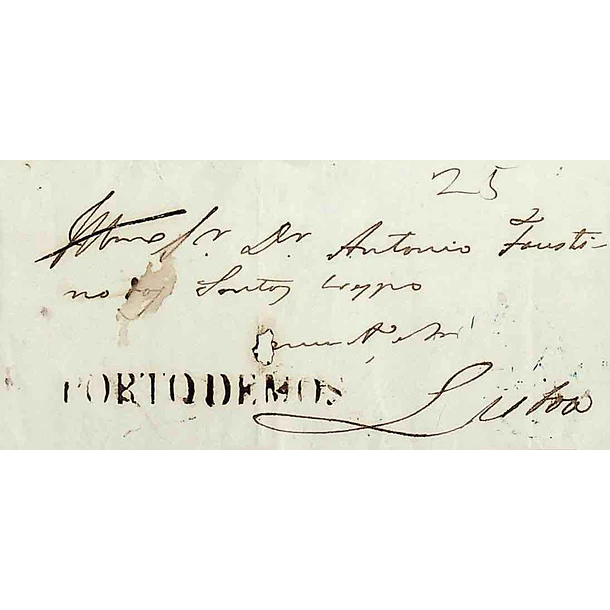 25
Illmo Sr. Dr. Antonio Fausti-
no dos Santos Crespo
PORTO DE MOS
Lisboa